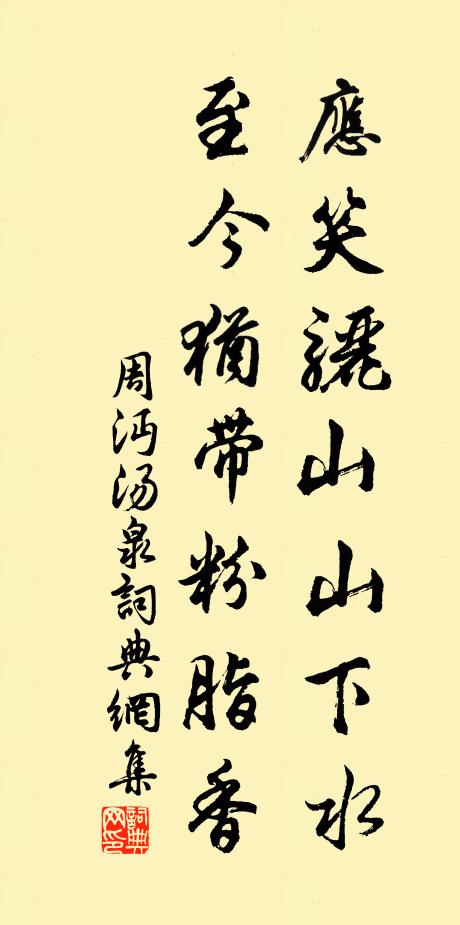 應笑驪山山下水
至今猶帶粉脂香
周沔汤泉詞典網集
詞典网印